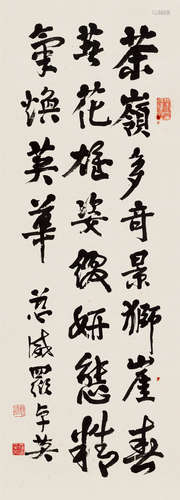 茶嶺多奇景獅崖春
著花雄姿妍態精
氣煥英華 慈威羅卓英